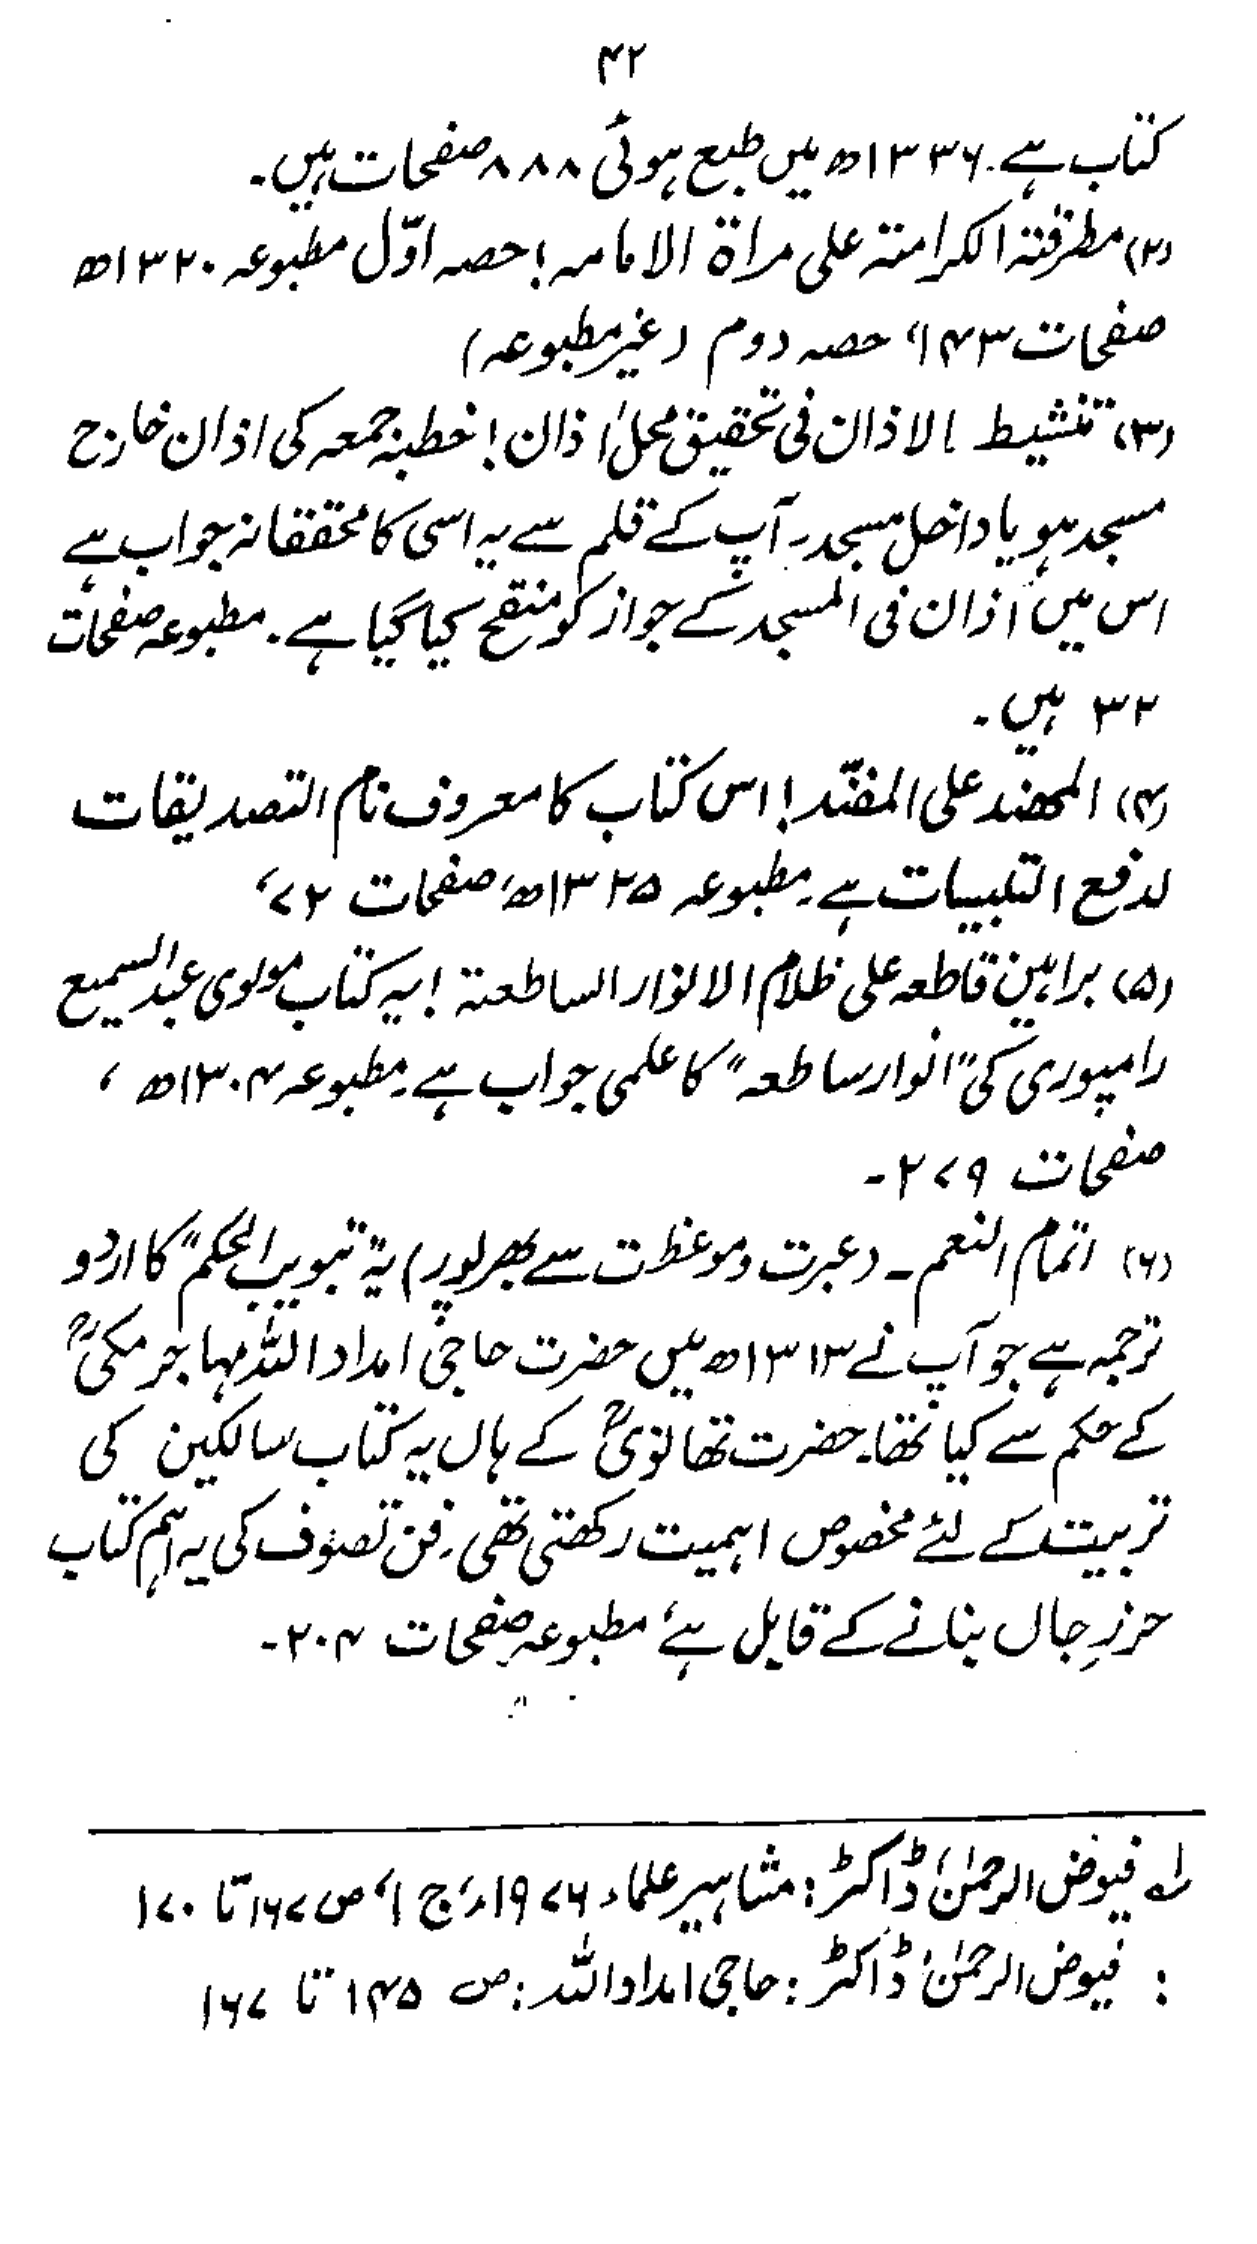 ۴۲
کتاب ہے۔ ۱۳۳۶ھ میں طبع ہوئی ۸۸۸ صفحات ہیں۔
(۲) مطرقۃ الکرامۃ علی مراۃ الامامہ! حصہ اوّل مطبوعہ ۱۳۲۰ھ
صفحات ۱۴۳، حصہ دوم (غیر مطبوعہ)
(۳) تنشیط الاذان فی تحقیق محل اذان! خطبۂ جمعہ کی اذان خارج
مسجد ہو یا داخل مسجد۔ آپ کے قلم سے یہ اسی کا محققانہ جواب ہے
اس میں اذان فی المسجد کے جواز کو منقح کیا گیا ہے۔ مطبوعہ صفحات
۳۲ ہیں۔
(۴) المھند علی المفنّد! اس کتاب کا معروف نام التصدیقات
لدفع التلبیسات ہے۔ مطبوعہ ۱۳۲۵ھ، صفحات ۷۲،
(۵) براہین قاطعہ علی ظلام الانوار الساطعۃ! یہ کتاب مولوی عبدالسمیع
رامپوری کی "انوار ساطعہ" کا علمی جواب ہے۔ مطبوعہ ۱۳۰۴ھ،
صفحات ۲۷۹۔
(۶) اتمام النعم۔ (عبرت و موعظت سے بھرپور) یہ "تبویب الحکم" کا اردو
ترجمہ ہے جو آپ نے ۱۳۱۳ھ میں حضرت حاجی امداد اللہ مہاجر مکیؒ
کے حکم سے کیا تھا۔ حضرت تھانویؒ کے ہاں یہ کتاب سالکین کی
تربیت کے لئے مخصوص اہمیت رکھتی تھی۔ فن تصوف کی یہ اہم کتاب
حرزِ جاں بنانے کے قابل ہے، مطبوعہ صفحات ۲۰۴۔
لہ فیوض الرحمٰن، ڈاکٹر: مشاہیر علماء ۱۹۷۶ء، ج ۱، ص ۱۶۷ تا ۱۷۰
: فیوض الرحمٰن، ڈاکٹر: حاجی امداد اللہ: ص ۱۴۵ تا ۱۶۷